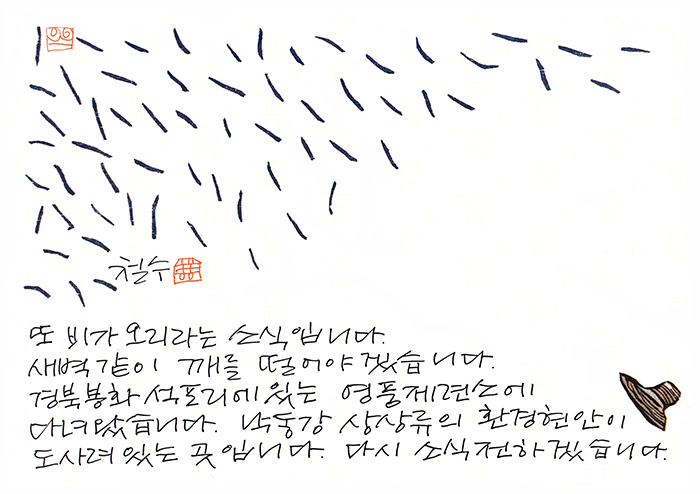 철수
또 비가 오리라는 소식입니다.
새벽같이 깨를 떨어야겠습니다.
경북봉화 석포리에 있는 영풍제련소에
다녀왔습니다. 낙동강 상상류의 환경현안이
도사려있는 곳입니다. 다시 소식전하겠습니다.